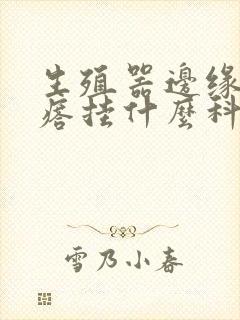 生殖器邊緣
痞挂什麼科
雪乃小春